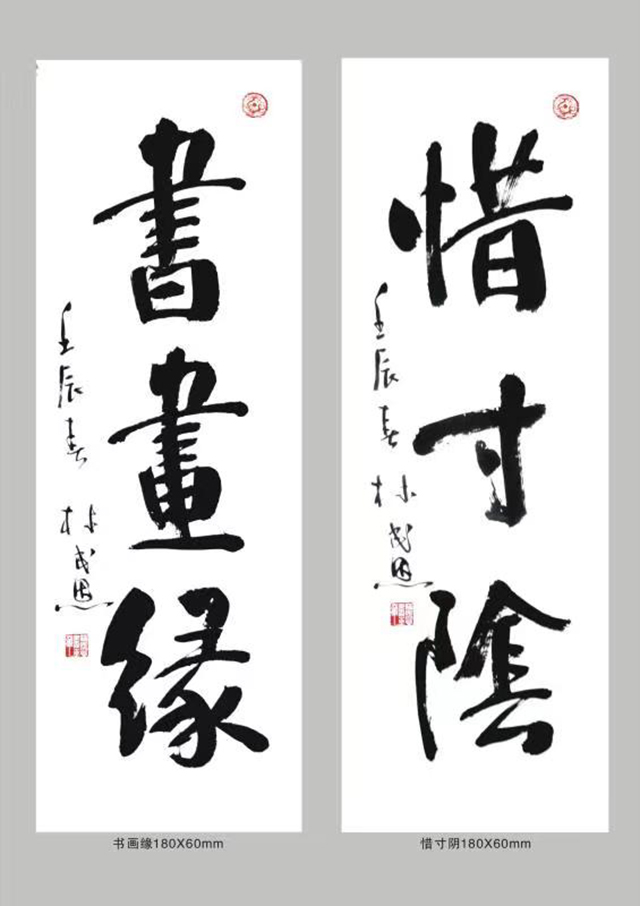 書畫緣
壬辰春 林恩
书画缘180X60mm
惜寸陰
壬辰春 林恩
惜寸阴180X60mm